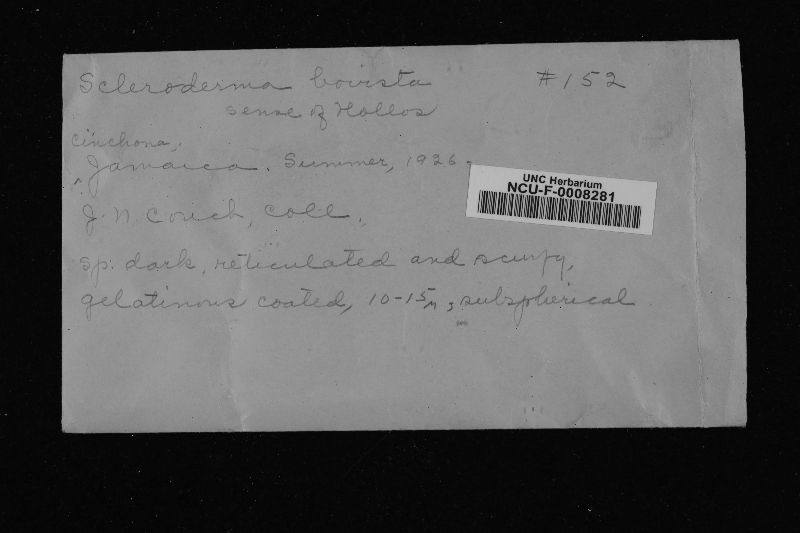 Scleroderma bovista #152
sense of Hollos
Cinchona,
^ Jamaica. Summer, 1926.
J. N. Couch, Coll.,
Sp. dark, reticulated and scurfy,
gelatinous coated, 10-15μ, subspherical
UNC Herbarium
NCU-F-0008281